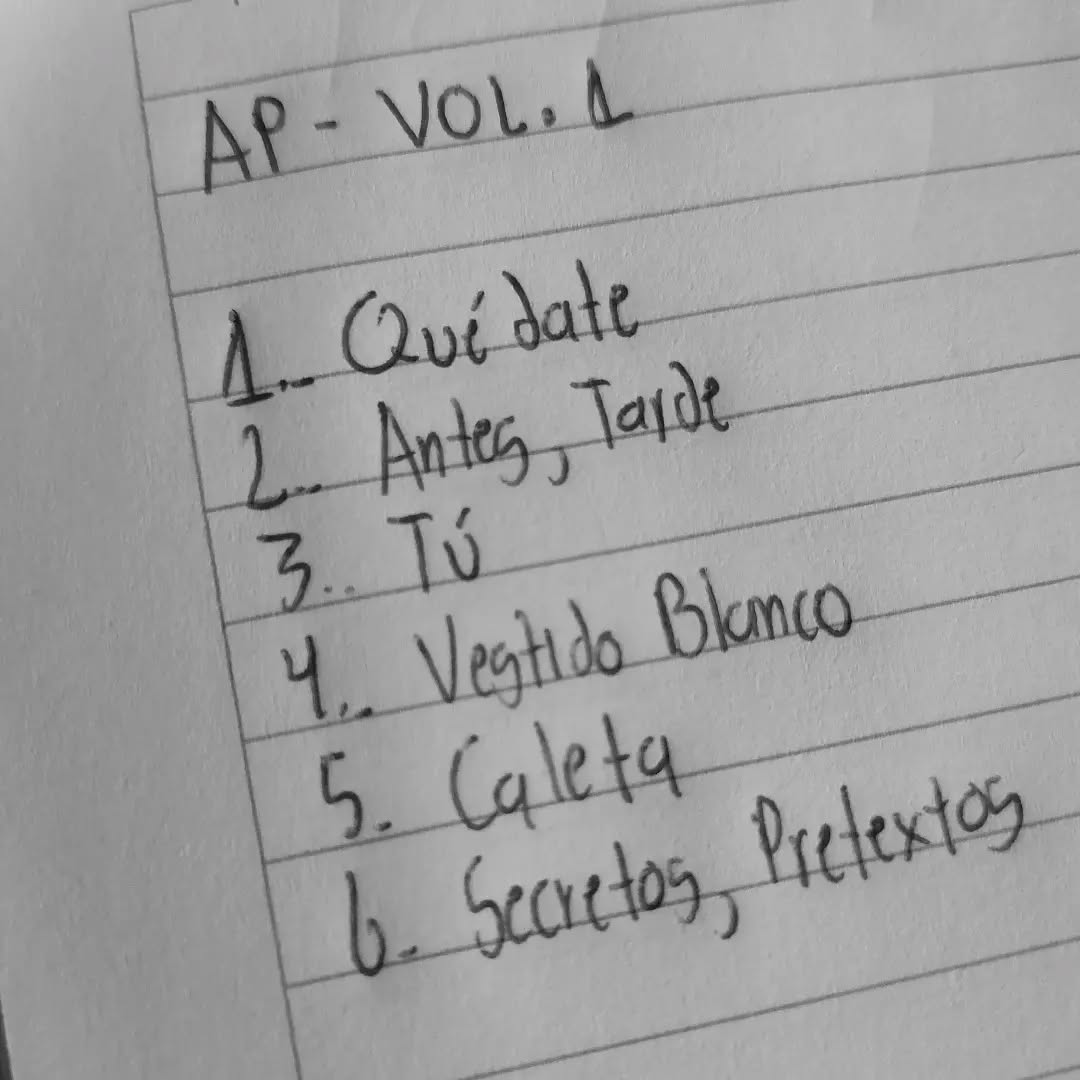 AP - VOL. 1
1.. Quédate
2.. Antes, Tarde
3.. Tú
4.. Vestido Blanco
5. Caleta
6. Secretos, Pretextos